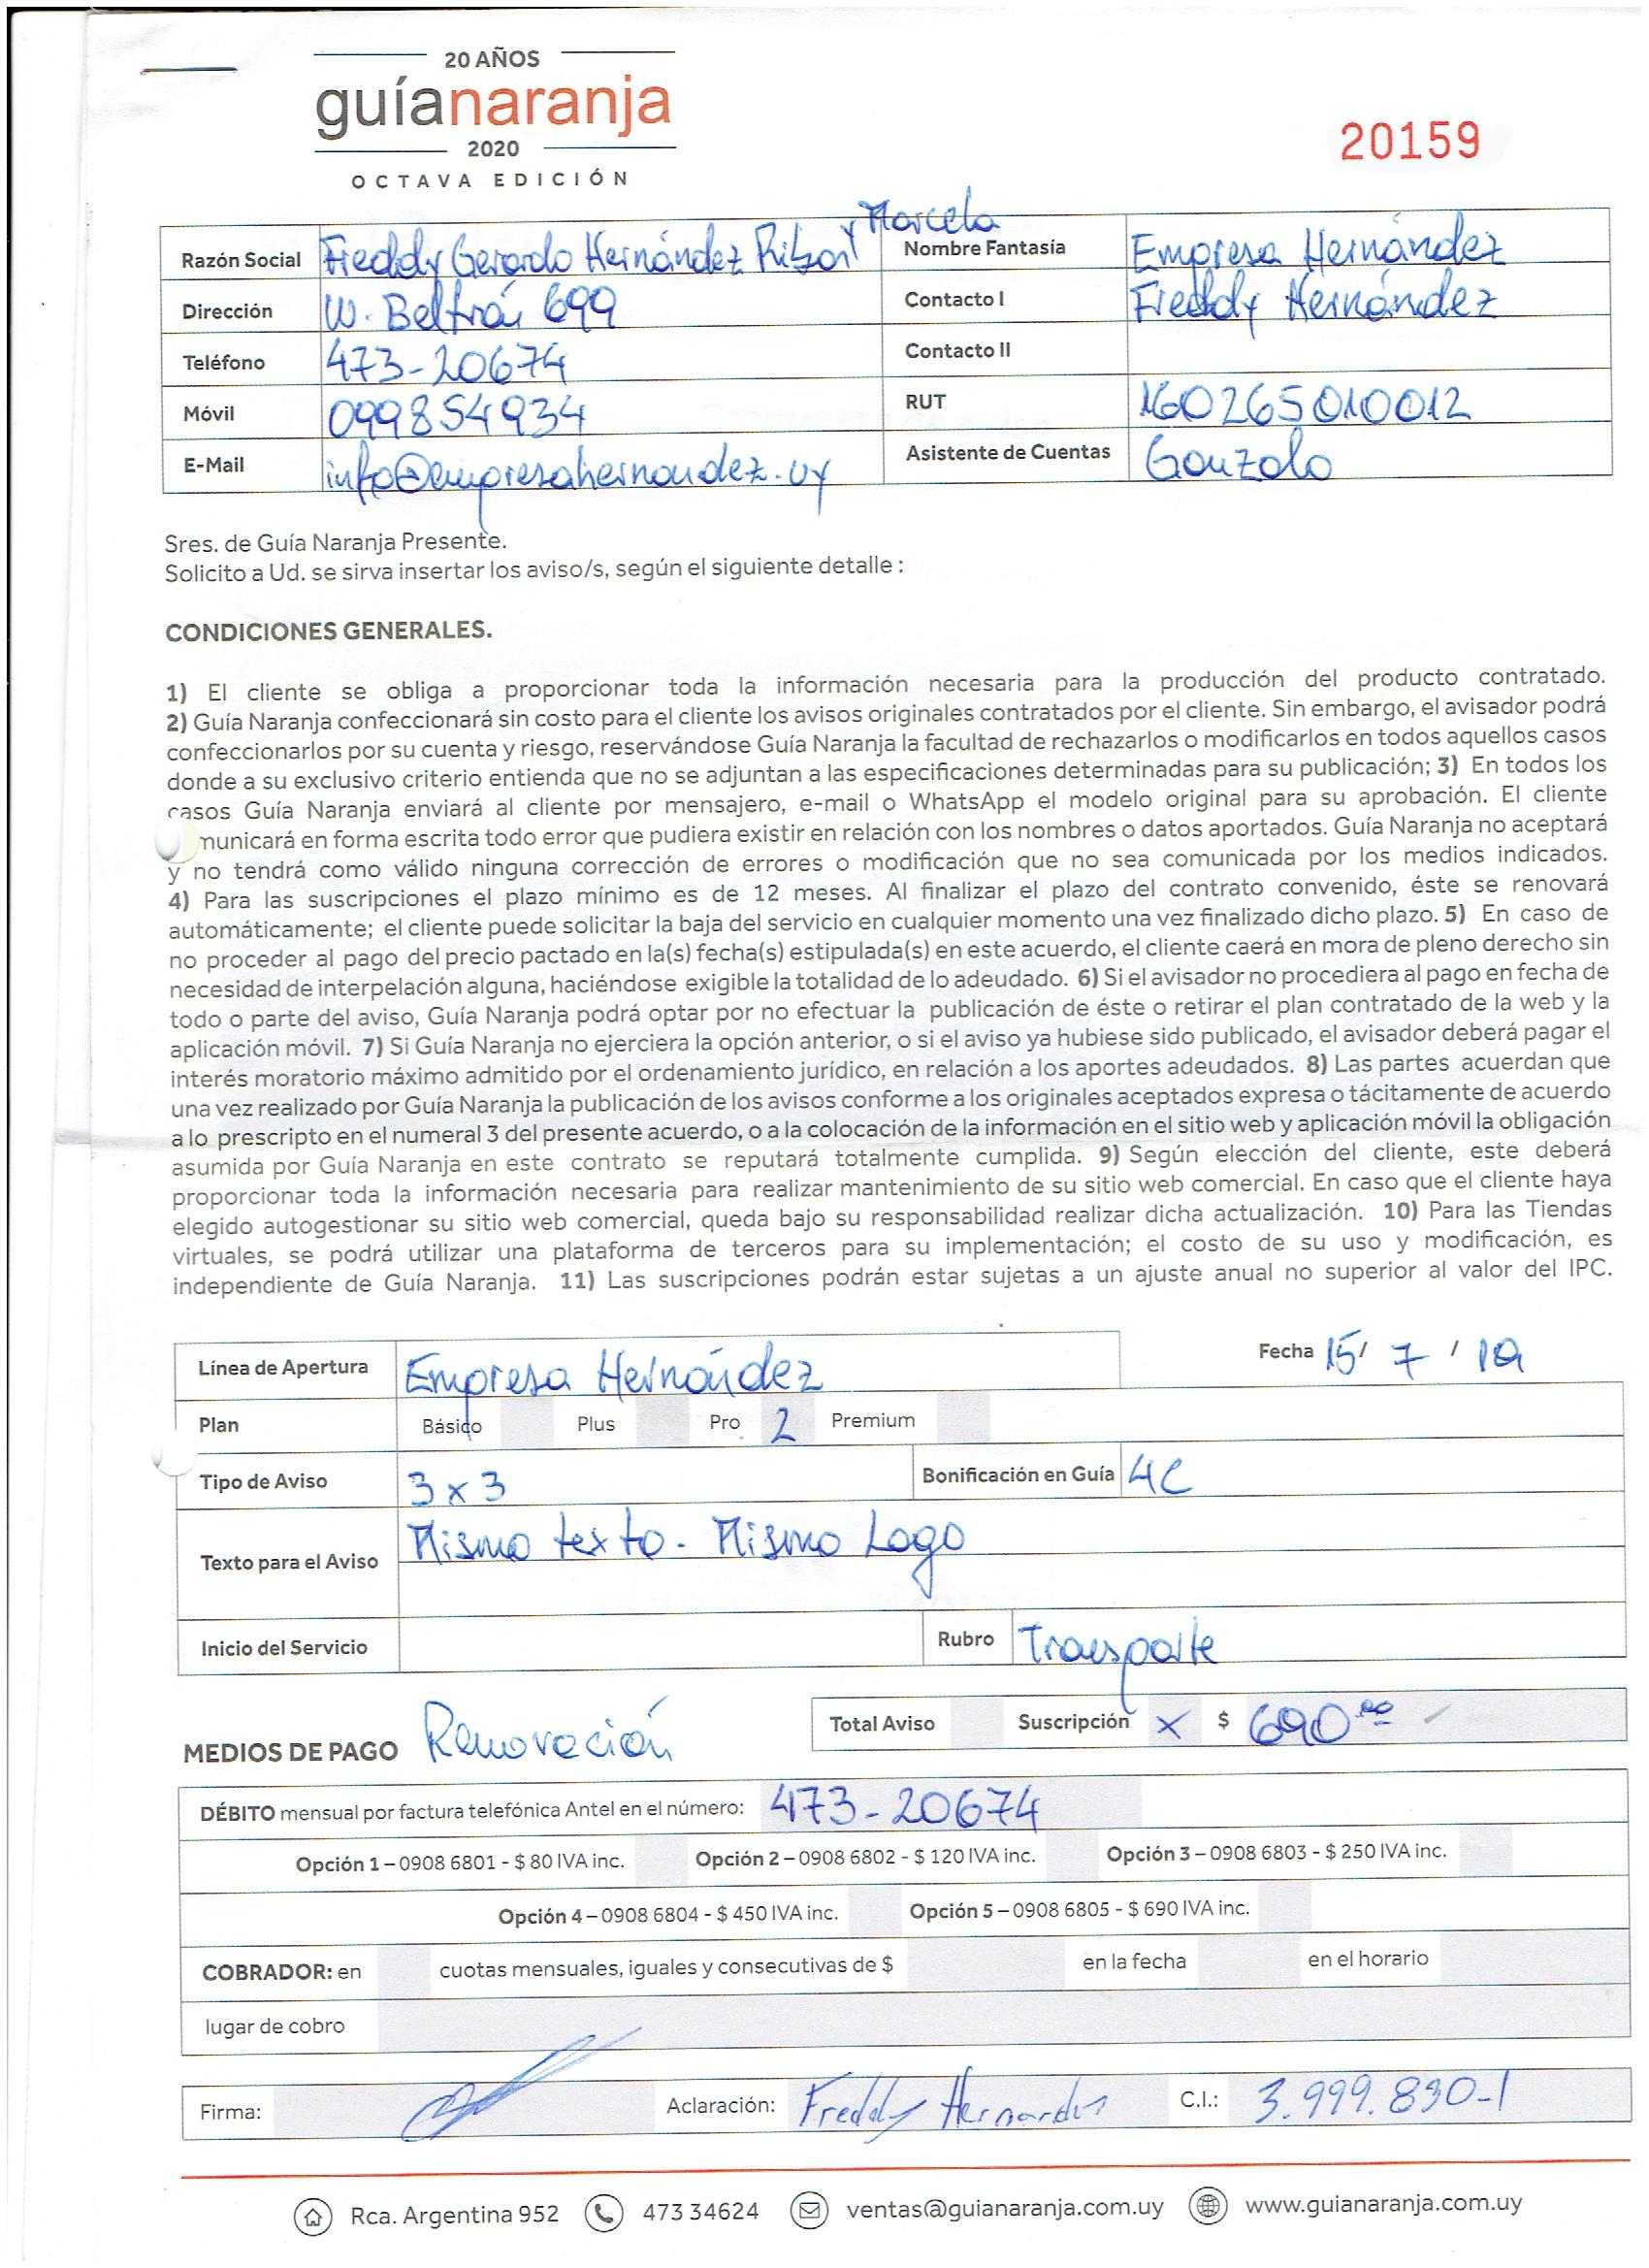 20 AÑOS
guíanaranja
2020
OCTAVA EDICIÓN
20159
Razón Social Freddy Gerardo Hernández y Marcela
Nombre Fantasía Empresa Hernández
Dirección W. Beltrán 699
Contacto I Freddy Hernández
Teléfono 473-20674
Contacto II
Móvil 099854934
RUT 160265010012
E-Mail info@empresahernandez.uy
Asistente de Cuentas Gonzalo
Sres. de Guía Naranja Presente.
Solicito a Ud. se sirva insertar los aviso/s, según el siguiente detalle :
CONDICIONES GENERALES.
1) El cliente se obliga a proporcionar toda la información necesaria para la producción del producto contratado.
2) Guía Naranja confeccionará sin costo para el cliente los avisos originales contratados por el cliente. Sin embargo, el avisador podrá
confeccionarlos por su cuenta y riesgo, reservándose Guía Naranja la facultad de rechazarlos o modificarlos en todos aquellos casos
donde a su exclusivo criterio entienda que no se adjuntan a las especificaciones determinadas para su publicación; 3) En todos los
casos Guía Naranja enviará al cliente por mensajero, e-mail o WhatsApp el modelo original para su aprobación. El cliente
municará en forma escrita todo error que pudiera existir en relación con los nombres o datos aportados. Guía Naranja no aceptará
y no tendrá como válido ninguna corrección de errores o modificación que no sea comunicada por los medios indicados.
4) Para las suscripciones el plazo mínimo es de 12 meses. Al finalizar el plazo del contrato convenido, éste se renovará
automáticamente; el cliente puede solicitar la baja del servicio en cualquier momento una vez finalizado dicho plazo. 5) En caso de
no proceder al pago del precio pactado en la(s) fecha(s) estipulada(s) en este acuerdo, el cliente caerá en mora de pleno derecho sin
necesidad de interpelación alguna, haciéndose exigible la totalidad de lo adeudado. 6) Si el avisador no procediera al pago en fecha de
todo o parte del aviso, Guía Naranja podrá optar por no efectuar la publicación de éste o retirar el plan contratado de la web y la
aplicación móvil. 7) Si Guía Naranja no ejerciera la opción anterior, o si el aviso ya hubiese sido publicado, el avisador deberá pagar el
interés moratorio máximo admitido por el ordenamiento jurídico, en relación a los aportes adeudados. 8) Las partes acuerdan que
una vez realizado por Guía Naranja la publicación de los avisos conforme a los originales aceptados expresa o tácitamente de acuerdo
a lo prescripto en el numeral 3 del presente acuerdo, o a la colocación de la información en el sitio web y aplicación móvil la obligación
asumida por Guía Naranja en este contrato se reputará totalmente cumplida. 9) Según elección del cliente, este deberá
proporcionar toda la información necesaria para realizar mantenimiento de su sitio web comercial. En caso que el cliente haya
elegido autogestionar su sitio web comercial, queda bajo su responsabilidad realizar dicha actualización. 10) Para las Tiendas
virtuales, se podrá utilizar una plataforma de terceros para su implementación; el costo de su uso y modificación, es
independiente de Guía Naranja. 11) Las suscripciones podrán estar sujetas a un ajuste anual no superior al valor del IPC.
Línea de Apertura Empresa Hernández
Fecha 15/ 7 / 19
Plan Básico Plus Pro 2 Premium
Tipo de Aviso 3 x 3
Bonificación en Guía 4C
Texto para el Aviso Mismo texto - Mismo Logo
Inicio del Servicio
Rubro Transporte
Total Aviso Suscripción X $ 690.00
MEDIOS DE PAGO Renovación
DÉBITO mensual por factura telefónica Antel en el número: 473-20674
Opción 1 – 0908 6801 - $ 80 IVA inc. Opción 2 – 0908 6802 - $ 120 IVA inc. Opción 3 – 0908 6803 - $ 250 IVA inc.
Opción 4 – 0908 6804 - $ 450 IVA inc. Opción 5 – 0908 6805 - $ 690 IVA inc.
COBRADOR: en cuotas mensuales, iguales y consecutivas de $ en la fecha en el horario
lugar de cobro
Firma: Aclaración: Freddy Hernandez C.I.: 3.999.830-1
Rca. Argentina 952 473 34624 ventas@guianaranja.com.uy www.guianaranja.com.uy